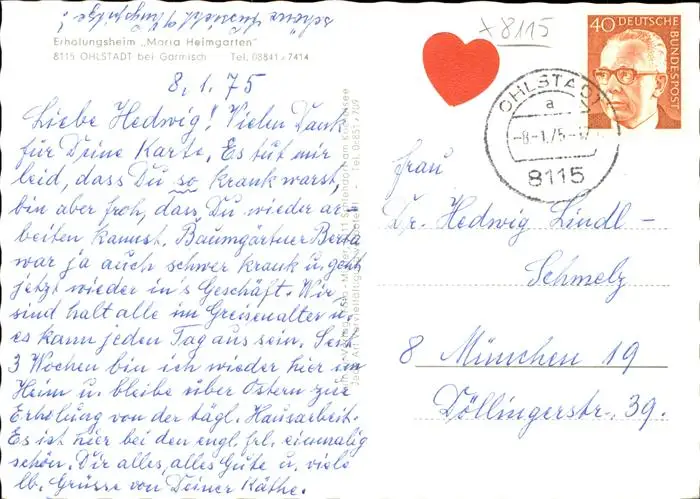 Erholungsheim „Maria Heimgarten"
8115 OHLSTADT bei Garmisch Tel. 08841 / 7414
8.1.75
Liebe Hedwig! Vielen Dank
für Deine Karte. Es tut mir
leid, dass Du so krank warst,
bin aber froh, dass Du wieder ar-
beiten kannst. Baumgärtner Berta
war ja auch schwer krank u. geht
jetzt wieder in's Geschäft. Wir
sind halt alle im Greisenalter u.
es kann jeden Tag aus sein. Seit
3 Wochen bin ich wieder hier im
Heim u. bleibe über Ostern zur
Erholung von der tägl. Hausarbeit.
Es ist hier bei den engl. Frl. einmalig
schön. Dir alles, alles Gute u. viele
lb. Grüsse von Deiner Käthe.
+8115
40 DEUTSCHE
BUNDESPOST
OHLSTADT
a
-8.-1.75-
8115
Frau
Dr. Hedwig Lindl-
Schmelz
8 München 19
Döllingerstr. 39.